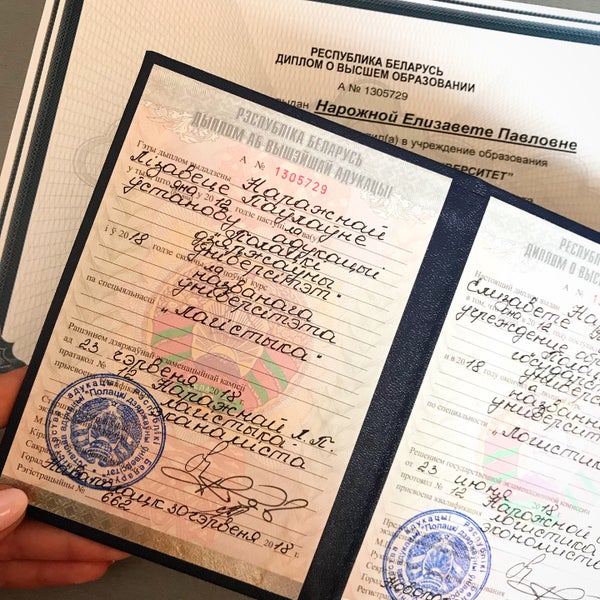 РЕСПУБЛИКА БЕЛАРУСЬ
ДИПЛОМ О ВЫСШЕМ ОБРАЗОВАНИИ
А № 1305729
выдан Нарожной Елизавете Павловне
в учреждение образования
РЭСПУБЛІКА БЕЛАРУСЬ
ДЫПЛОМ АБ ВЫШЭЙШАЙ АДУКАЦЫІ
А № 1305729
Гэты дыплом выдадзены Нарожнай
Лізавеце Паўлаўне
у тым, што яна ў 2012 годзе паступіла
ўстанову адукацыі
"Полацкі
дзяржаўны
універсітэт"
і ў 2018 годзе скончыла поўны курс
названага
універсітэта
па спецыяльнасці
"лагістыка"
Рашэннем дзяржаўнай экзаменацыйнай камісіі
ад 23 чэрвеня 2018
пратакол № 12 Нарожнай Л.П.
прысвоена кваліфікацыя
лагістыка
эканаміста
Горад
30 чэрвеня 2018
Рэгістрацыйны № 662
РЕСПУБ
ДИПЛОМ О ВЫСШЕ
Настоящий диплом выдан
Елизавете
в том, что
в 2012
учреждение об
и в 2018
названно
университе
по специальности
"логистик
Решением государственной экзаменационной комиссии
от 23 июня 2018
протокол № 12 Нарожной
присвоена квалификация
логистика
экономиста